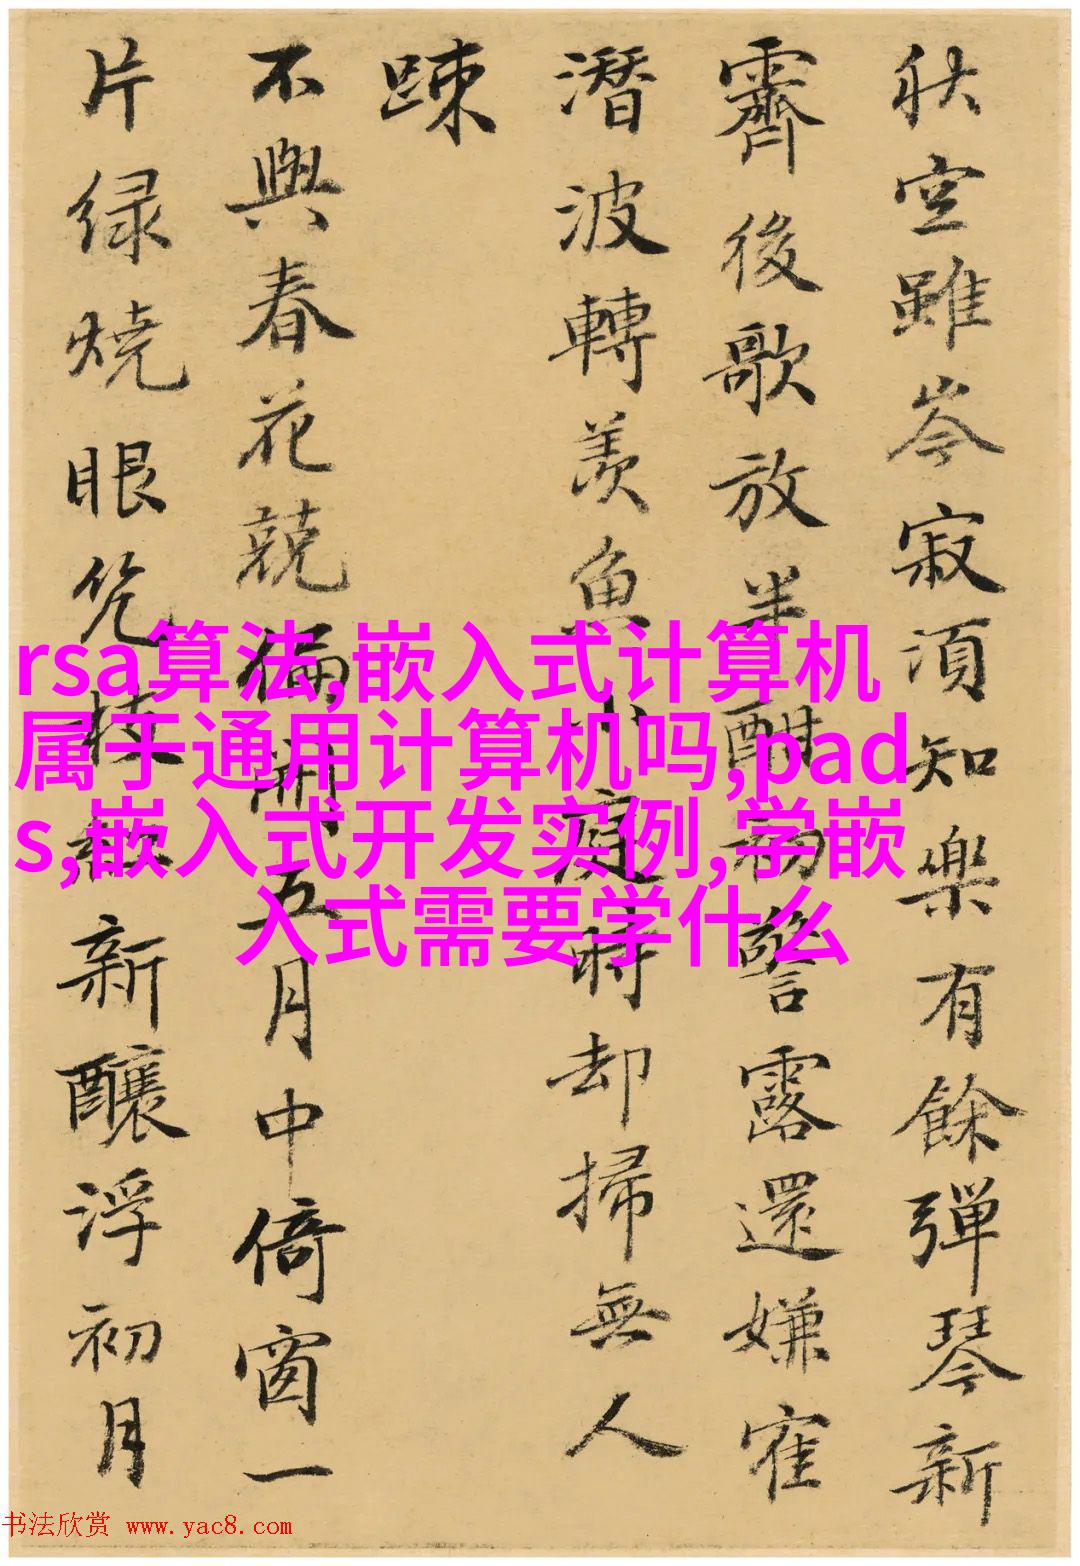 秋空雖岑寂湏知樂有餘彈琴新
霽後歌放半酣初警露還嫌寉
潛波轉羨魚小庭時却掃無人
踈
不與春花競偏開五月中倚窗一
片緑燒眼枝紅新釀浮初月
rsa算法,嵌入式计算机
属于通用计算机吗,pad
s,嵌入式开发实例,学嵌
入式需要学什么
书法欣赏 www.yac8.com